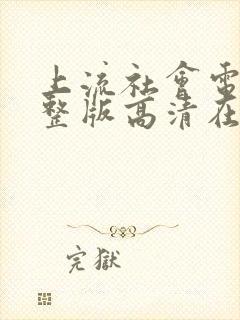 上流社會電
整版高清在
完獄